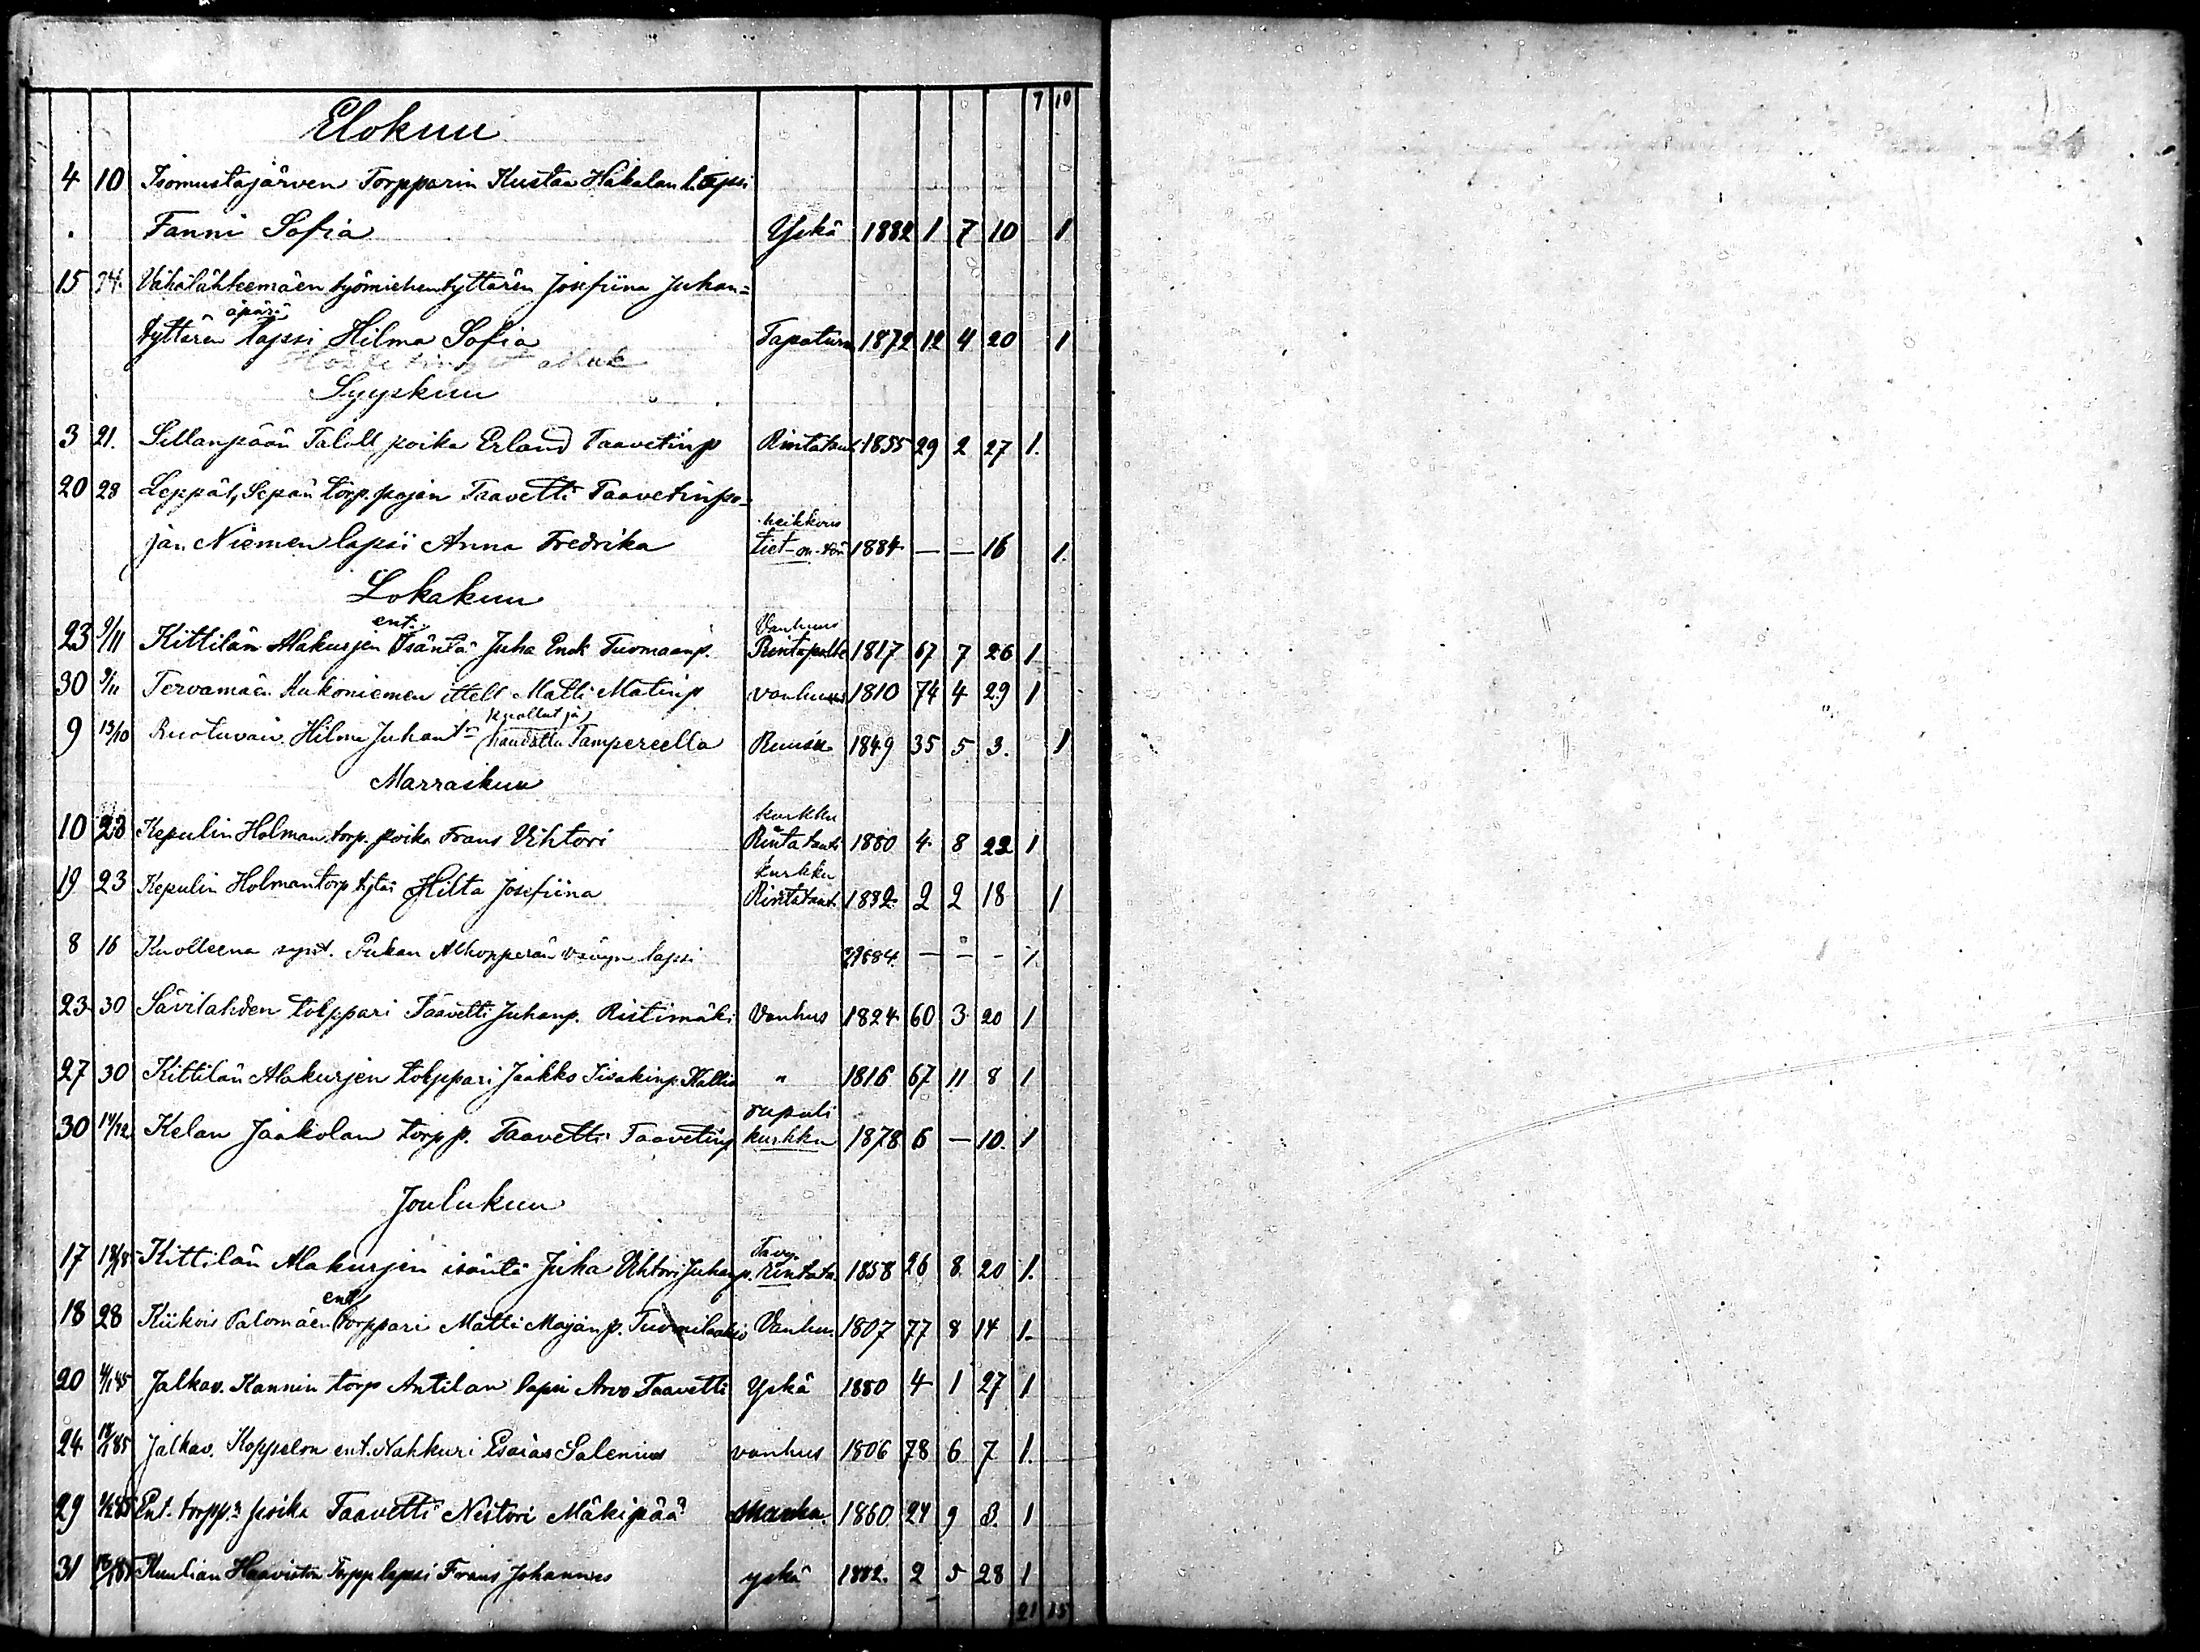 7 10
Elokuu
4 10 Isomustajärven Torpparin Kustaa Hakalan lapsi
Fanni Sofia Yskä 1882 1 7 10 1
15 24. Vähälähteemäen työmiehentyttären Josefiina Juhan=
äpärä
tyttären lapsi Hilma Sofia Tapaturm 1872 12 4 20 1
Syyskuu
3 21. Sillanpään Taloll poika Erland Taavetinp Rintataut 1855 29 2 27 1.
20 28 Leppäl, Sepän torp. pojan Taavetti Taavetinpo=
heikkous
jan Niemen lapsi Anna Fredrika tiet-on-tön 1884 — — 16 1.
Lokakuu
ent. Vanhuus
23 9/11 Kittilän Alakurjen Isäntä Juha Enok Tuomaanp. Rintapolte 1817 67 7 26 1
30 9/11 Tervamäen Kukoniemen ittell Matti Matinp vanhuus 1810 74 4 29 1
kuollut ja
9 13/10 Ruotuvai. Hilma Juhant haudattu Tampereella Ruusu 1849 35 5 3. 1
Marraskuu
kurkku
10 23 Kepulin Holman torp. poika Frans Vihtori Rintataut 1880 4 8 22 1
kurkku
19 23 Kepulin Holman torp tytär Hilta Josefiina Rintataut. 1882 2 2 18 1
8 16 Kuolleena synt. Pukan Alhopperän vävyn lapsi 84 — — - 1.
23 30 Savilahden torppari Taavetti Juhanp. Ristimäki Vanhus 1824 60 3 20 1
27 30 Kittilän Alakurjen torppari Jaakko Iisakinp. Kallio " 1816 67 11 8 1
rupuli
30 14/12 Kelan Jaakolan torpp. Taavetti Taavetinp kurkku 1878 6 — 10. 1
Joulukuu
17 18/85 Kittilän Alakurjen isäntä Juha Vihtori Juhanp. rintata 1858 26 8 20 1.
ent
18 28 Kiikois Palomäen torppari Matti Majanp. Tuomilaakso Vanhu. 1807 77 8 14 1.
20 4/1 85 Jalkav. Kannin torp Antilan lapsi Arvo Taavetti Yskä 1880 4 1 27 1
24 18/1 85 Jalkav. Koppelon ent. Nahkuri Esaias Salenius vanhus 1806 78 6 7 1.
29 Ent. torpp:n poika Taavetti Nestori Mäkipää 1860 24 9 3. 1
31 Kuulian Haaviston Torpp lapsi Frans Johannes yskä 1882. 2 5 28 1
21 15